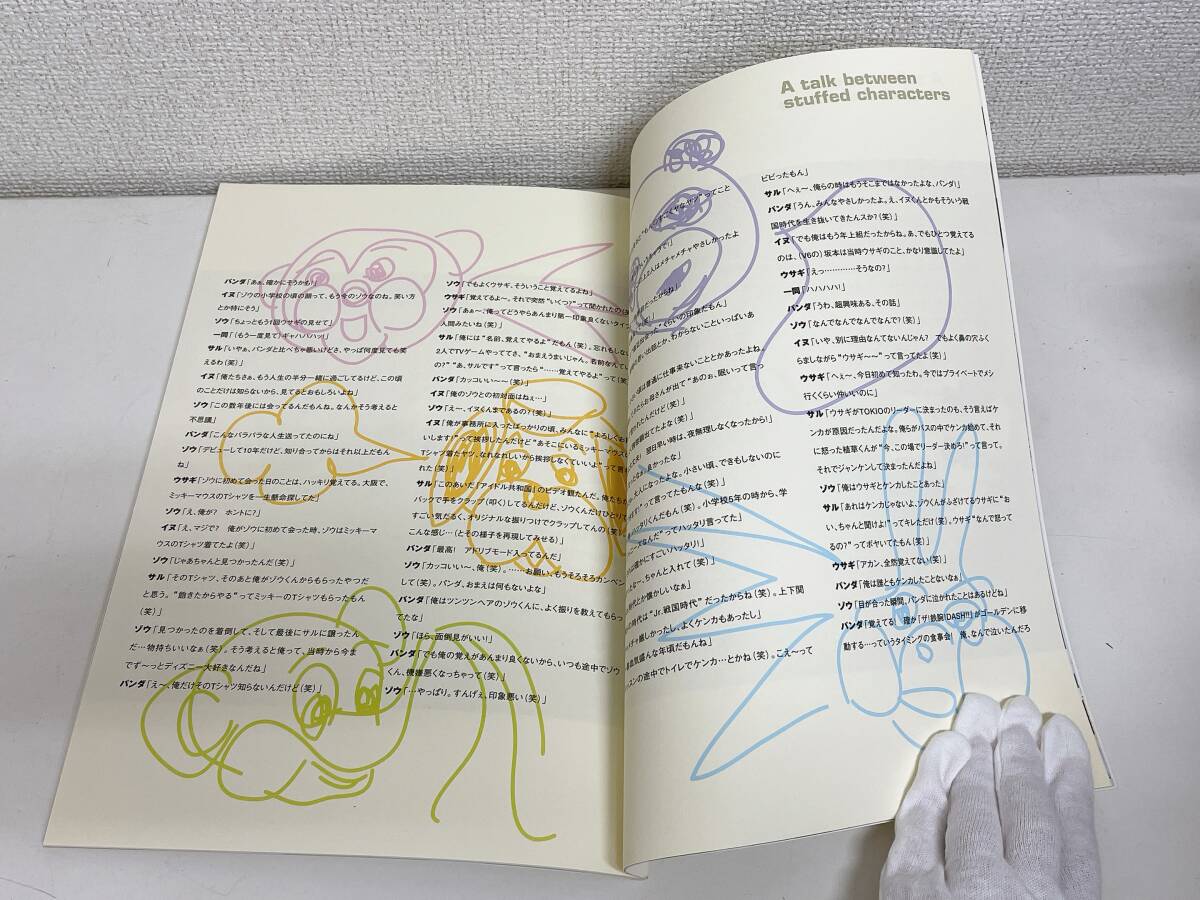 A talk between
stuffed characters
パンダ「あぁ、確かにそうかも!」
イヌ「ゾウの小学校の頃の顔って、もう今のゾウなのね。笑い方
とか特にそう」
ゾウ「ちょっともう1回ウサギの見せて」
一同「(もう一度見て)ギャハハハッ!」
サル「いやぁ、パンダと比べちゃ悪いけどさ、やっぱ何度見ても笑
えるわ(笑)」
イヌ「俺たちさぁ、もう人生の半分一緒に過ごしてるけど、この頃
のことだけは知らないから、見てるとおもしろいよね」
ゾウ「この数年後には会ってるんだもんね。なんかそう考えると
不思議」
パンダ「こんなバラバラな人生送ってたのにね」
ゾウ「デビューして10年だけど、知り合ってからはそれ以上だもん
ね」
ウサギ「ゾウに初めて会った日のことは、ハッキリ覚えてる。大阪で、
ミッキーマウスのTシャツを一生懸命探してた」
ゾウ「え、俺が? ホントに?」
イヌ「え、マジで? 俺がゾウに初めて会った時、ゾウはミッキーマ
ウスのTシャツ着てたよ(笑)」
ゾウ「じゃあちゃんと見つかったんだ(笑)」
サル「そのTシャツ、そのあと俺がゾウくんからもらったやつだ
と思う。“飽きたからやる”ってミッキーのTシャツもらったもん
(笑)」
ゾウ「見つかったのを着倒して、そして最後にサルに譲ったん
だ…物持ちいいなぁ(笑)。そう考えると俺って、当時から今ま
でず〜っとディズニー大好きなんだね」
パンダ「え〜、俺だけそのTシャツ知らないんだけど(笑)」
ゾウ「でもよくウサギ、そういうこと覚えてるよね」
ウサギ「覚えてるよ〜。それで突然“いくつ?”って聞かれたの
ゾウ「あぁ〜、俺ってどうやらあんまり第一印象良くないタイプ
人間みたいね(笑)」
サル「俺には“名前、覚えてやるよ”だもん(笑)。忘れもしない
2人でTVゲームやってて、“おまえうまいじゃん。名前なんて
の?”“あ、サルです”って言ったら“……覚えてやるよ”って
パンダ「カッコいい〜〜(笑)」
イヌ「俺のゾウとの初対面はねぇ…」
ゾウ「えー、イヌくんまであるの?(笑)」
イヌ「俺が事務所に入ったばっかりの頃、みんなに“よろしくお
いします”って挨拶したんだけど“あそこにいるミッキーマウ
Tシャツ着たヤツ、なれなれしいから挨拶しなくていいよ”って言
れた(笑)」
サル「このあいだ『アイドル共和国』のビデオ観たんだ。俺たち
バックで手をクラップ(叩く)してるんだけど、ゾウくんだけひとり
すごい気だるく、オリジナルな振りつけでクラップしてんの(笑)
こんな感じ…(とその様子を再現してみせる)」
パンダ「最高! アドリブモード入ってるんだ」
ゾウ「カッコいい〜、俺(笑)。……お願い、もうそろそろカンベン
して(笑)。パンダ、おまえは何もないよな」
パンダ「俺はツンツンヘアのゾウくんに、よく振りを教えてもらっ
てたな」
ゾウ「ほら、面倒見がいい!」
パンダ「でも俺の覚えがあんまり良くないから、いつも途中でゾウ
くん、機嫌悪くなっちゃって(笑)」
ゾウ「…やっぱり。すんげぇ、印象悪い(笑)」
ってこと
2人はメチャメチャやさしかったよ
だったからね」
くらいの印象だもん」
い出話とか、わからないこといっぱいあ
頃は普通に仕事来ないことかあったよね
たらお母さんが出て“あのぉ、眠いって言っ
われたんだけど(笑)」
翌日早い時は、夜無理しなくなったから!」
なぁ良かったな」
大人になったよな。小さい頃、できもしないのに
”って言ってたもんな(笑)」
タリくんだもん(笑)。小学校5年の時から、学
なんだ”ってハッタリ言ってた」
確かにすごいハッタリ!」
ちゃんと入れて(笑)」
時代とか懐かしいなぁ」
時代は“Jr.戦国時代”だったからね(笑)。上下関
チャ厳しかったし、よくケンカもあったし」
番血気盛んな年頃だもんね」
スンの途中でトイレでケンカ…とかね(笑)。こえ〜って
ビビったもん」
サル「へぇ〜、俺らの時はもうそこまではなかったよな、パンダ」
パンダ「うん、みんなやさしかったよ。え、イヌくんとかもそういう戦
国時代を生き抜いてきたんスか?(笑)」
イヌ「でも俺はもう年上組だったからね。あ、でもひとつ覚えてる
のは、(V6の)坂本は当時ウサギのこと、かなり意識してたよ」
ウサギ「えっ…………そうなの?」
一同「ハハハハ!」
パンダ「うわ、超興味ある、その話」
ゾウ「なんでなんでなんでなんで?(笑)」
イヌ「いや、別に理由なんてないんじゃん? でもよく鼻の穴ふく
らましながら“ウサギ〜〜”って言ってたよ(笑)」
ウサギ「へぇ〜、今日初めて知ったわ。今ではプライベートでメシ
行くくらい仲いいのに」
サル「ウサギがTOKIOのリーダーに決まったのも、そう言えばケ
ンカが原因だったんだよな。俺らがバスの中でケンカ始めて、それ
に怒った植草くんが“今、この場でリーダー決めろ!”って言って。
それでジャンケンして決まったんだよね」
ゾウ「俺はウサギとケンカしたことあった」
サル「あれはケンカじゃないよ、ゾウくんがふざけてるウサギに“お
い、ちゃんと聞けよ!”ってキレただけ(笑)。ウサギ“なんで怒って
るの?”ってボヤいてたもん(笑)」
ウサギ「アカン、全然覚えてない(笑)」
パンダ「俺は誰ともケンカしたことないなぁ」
ゾウ「目が合った瞬間、パンダに泣かれたことはあるけどね」
パンダ「覚えてる! 確か『ザ!鉄腕!DASH!!』がゴールデンに移
動する…っていうタイミングの食事会 俺、なんで泣いたんだろ